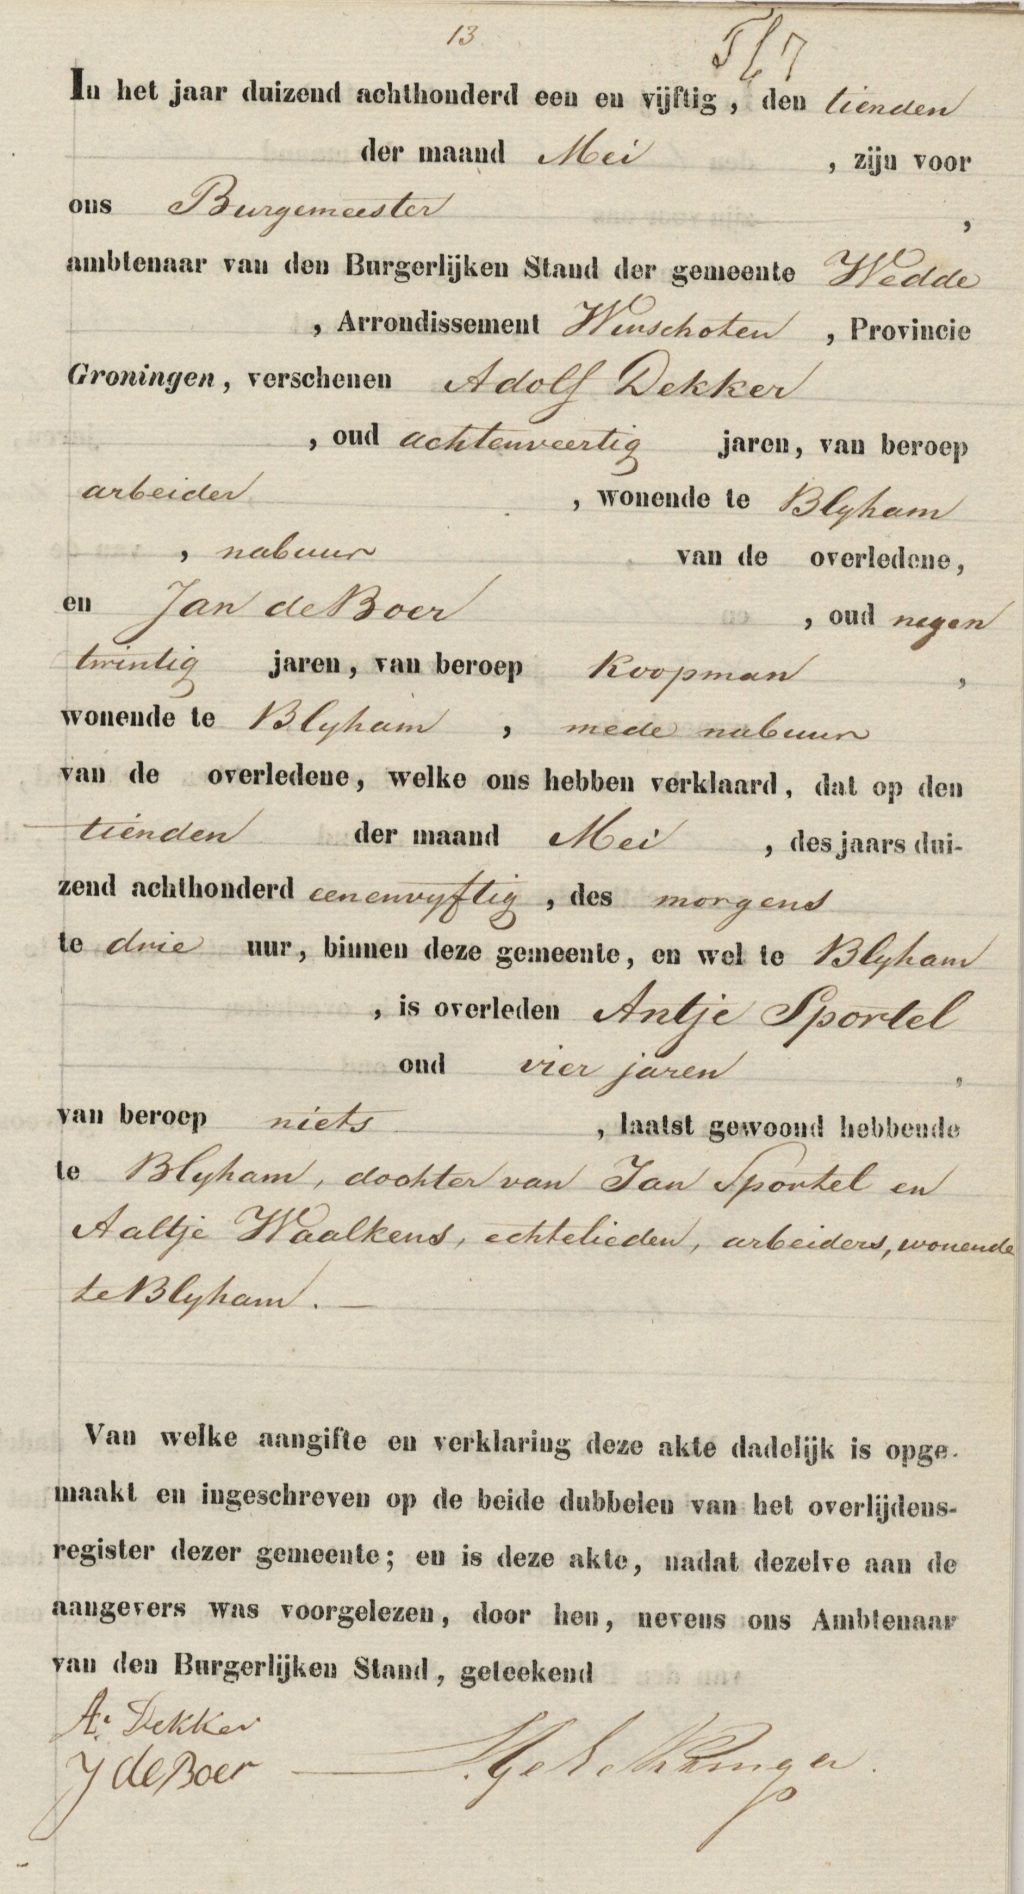 13
In het jaar duizend achthonderd een en vijftig, den tienden
der maand Mei, zijn voor
ons Burgemeester,
ambtenaar van den Burgerlijken Stand der gemeente Wedde
, Arrondissement Winschoten, Provincie
Groningen, verschenen Adolf Dekker
, oud achtenveertig jaren, van beroep
arbeider, wonende te Blyham
, nabuur van de overledene,
en Jan de Boer, oud negen
twintig jaren, van beroep Koopman,
wonende te Blyham, mede nabuur
van de overledene, welke ons hebben verklaard, dat op den
tienden der maand Mei, des jaars dui-
zend achthonderd eenenvyftig, des morgens
te drie uur, binnen deze gemeente, en wel te Blyham
, is overleden Antje Sportel
oud vier jaren,
van beroep niets, laatst gewoond hebbende
te Blyham, dochter van Jan Sportel en
Aaltje Waalkens, echtelieden, arbeiders, wonende
te Blyham. —
Van welke aangifte en verklaring deze akte dadelijk is opge-
maakt en ingeschreven op de beide dubbelen van het overlijdens-
register dezer gemeente; en is deze akte, nadat dezelve aan de
aangevers was voorgelezen, door hen, nevens ons Ambtenaar
van den Burgerlijken Stand, geteekend
A. Dekker
J de Boer